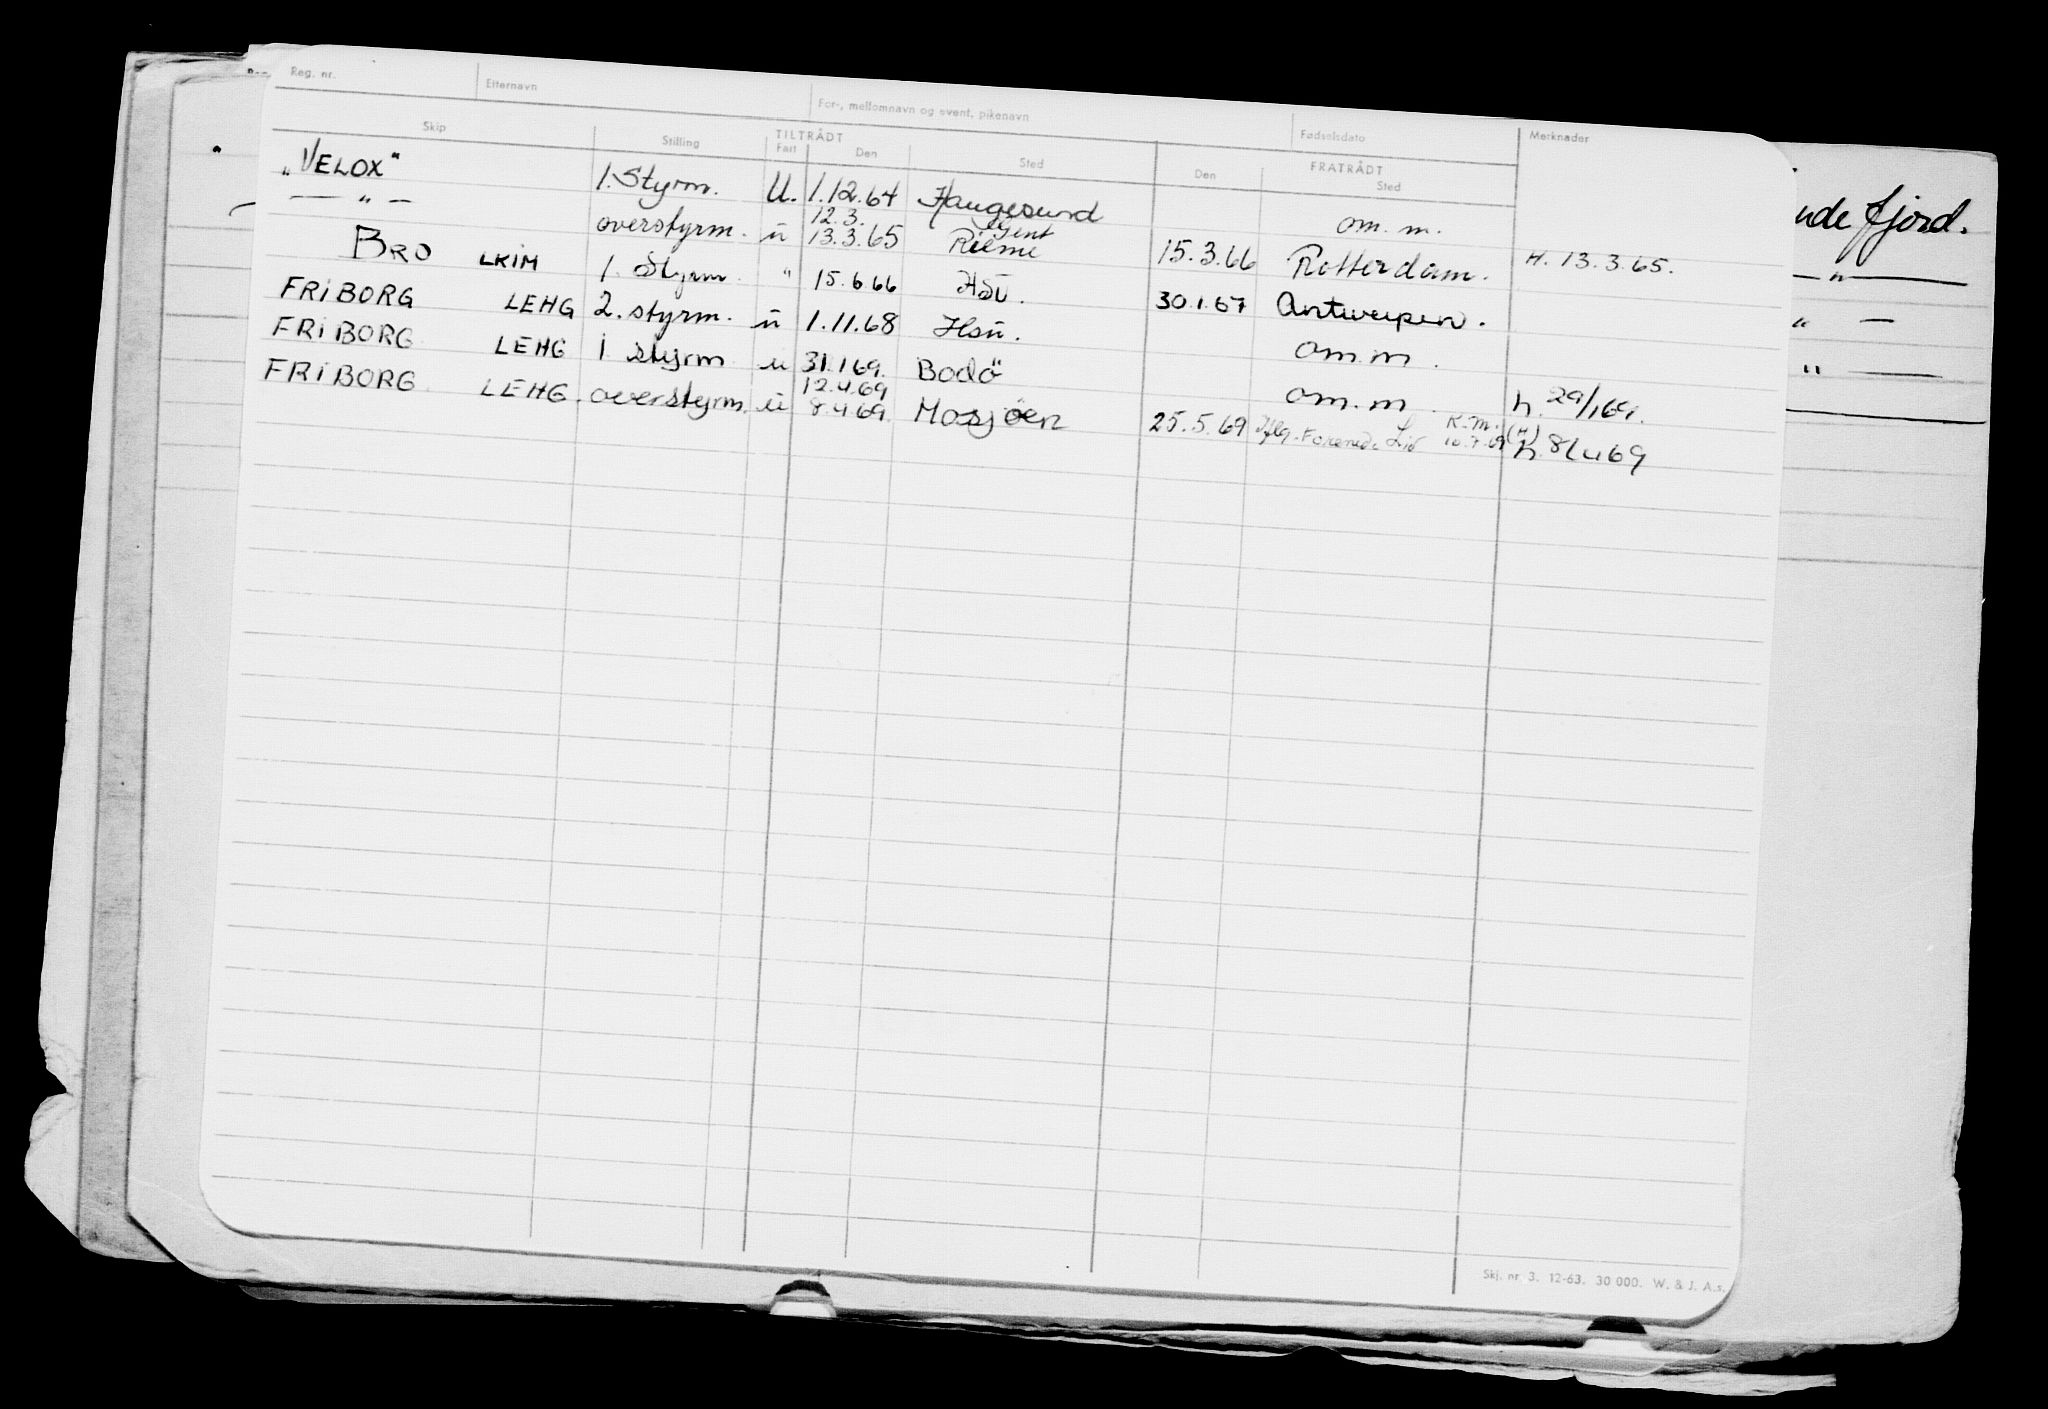 Reg. nr. Etternavn For-, mellomnavn og event. pikenavn Fødselsdato Merknader
Skip Stilling TILTRÅDT FRATRÅDT
Fart Den Sted Den Sted
„VELOX“ 1. Styrm. U. 1.12.64 Haugesund om. m.
— „ — overstyrm. u 12.3. 13.3.65 Gent Rieme 15.3.66 Rotterdam. H. 13.3.65.
BRO LKIM 1. Styrm. " 15.6.66 HSU. 30.1.67 Antwerpen.
FRIBORG LEHG 2. styrm. u 1.11.68 Hsu. om.m.
FRIBORG LEHG 1 styrm u 31.1 69. Bodö om.m. h. 29/1 69.
FRIBORG LEHG. overstyrm. u 12.4.69 8.4 69. Mosjöen 25.5.69 Iflg. Forenede Liv R.M. 10.7.69 (H) h. 8/4 69
nde fjord.
— „ —
„ —
„ —
Skj. nr. 3. 12-63. 30 000. W. & J. A.s.